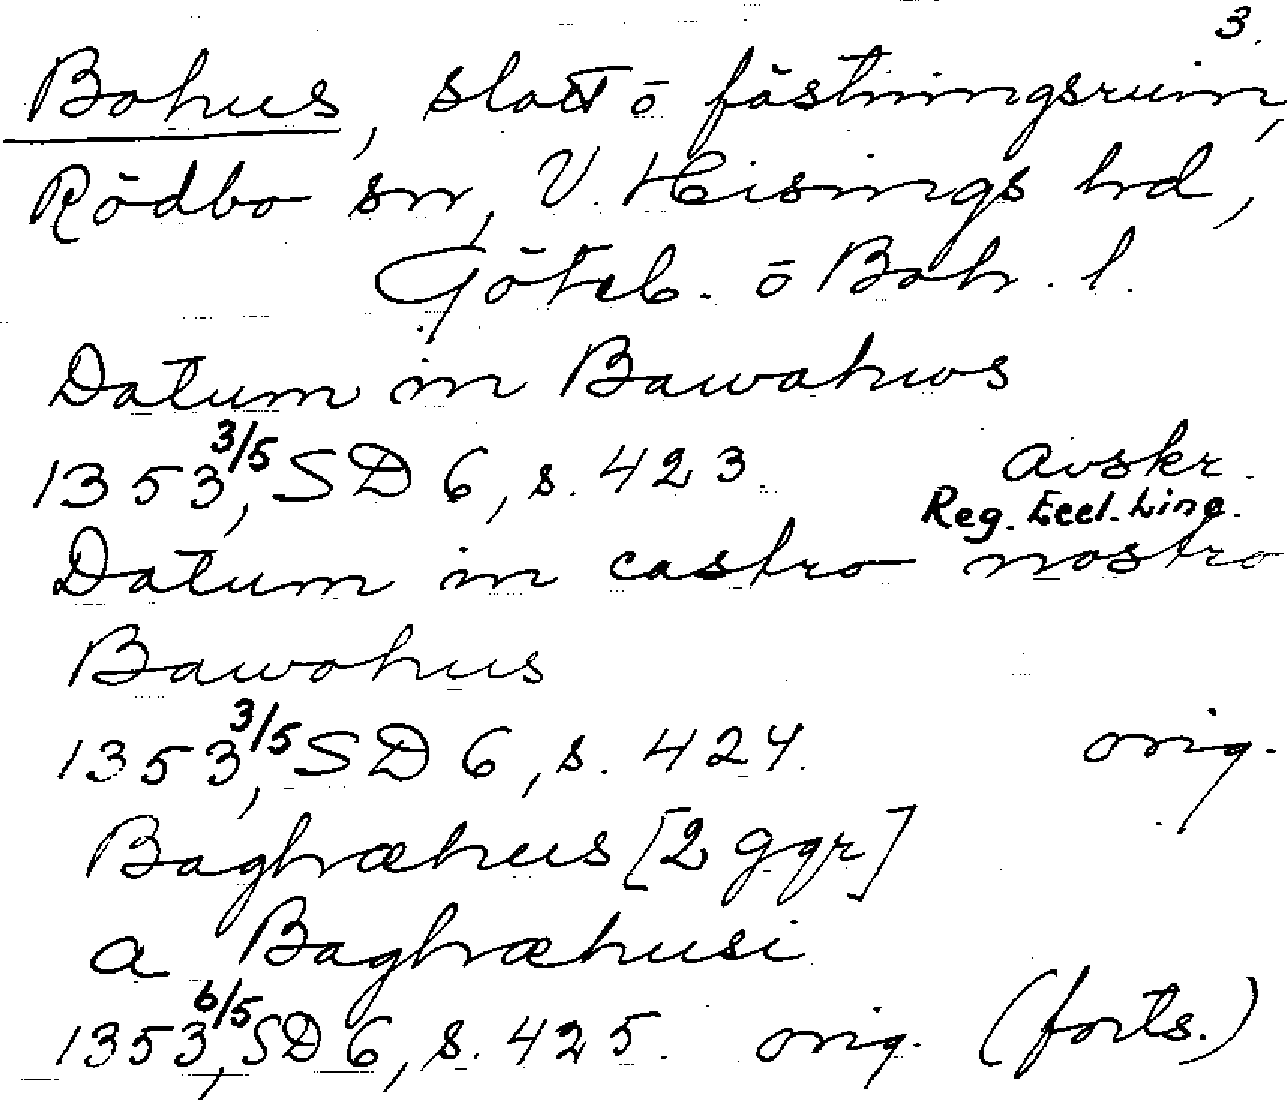 3.
Bohus, slott o fästningsruin,
Rödbo sn, V. Hisings hd,
Göteb. o Boh. l.
Datum in Bawahws
1353 3/5, SD 6, s. 423. avskr.
Reg. Eccl. Linc.
Datum in castro nostro
Bawohus
1353 3/5, SD 6, s. 424. orig.
Baghæhus [2 ggr]
a Baghæhusi
1353 6/5, SD 6, s. 425. orig. (forts.)